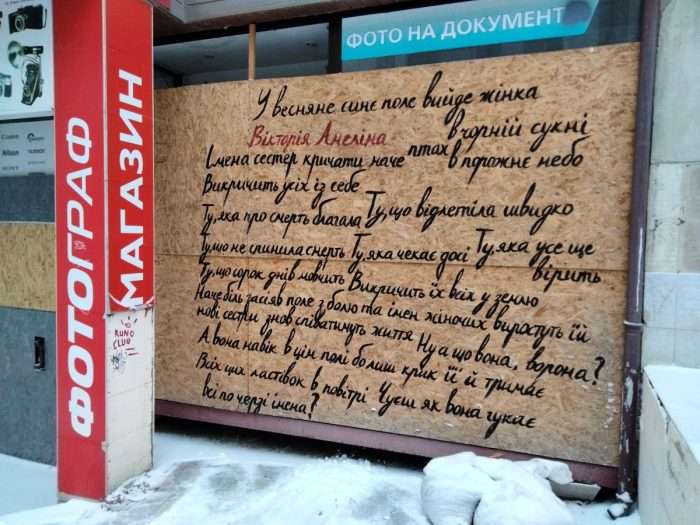 ФОТО НА ДОКУМЕНТ
ФОТОГРАФ
МАГАЗИН
Canon
Nikon
RUNO
CLUB
У весняне синє поле вийде жінка
Вікторія Амеліна
в чорній сукні
Імена сестер кричати наче птах в порожнє небо
Викричить усіх із себе
Ту, яка про смерть благала Ту, що відлетіла швидко
Ту, що не спинила смерть Ту, яка чекає досі Ту, яка усе ще
вірить
Ту, що сорок днів мовчить Викричить їх всіх у землю
Наче біль засіяв поле з болю та імен жіночих виростуть її й
нові сестри знов співатимуть життя Ну а що вона, ворона?
А вона навік в цім полі бо лиш крик її й тримає
Всіх цих ластівок в повітрі Чуєш як вона гукає
всі по черзі імена?